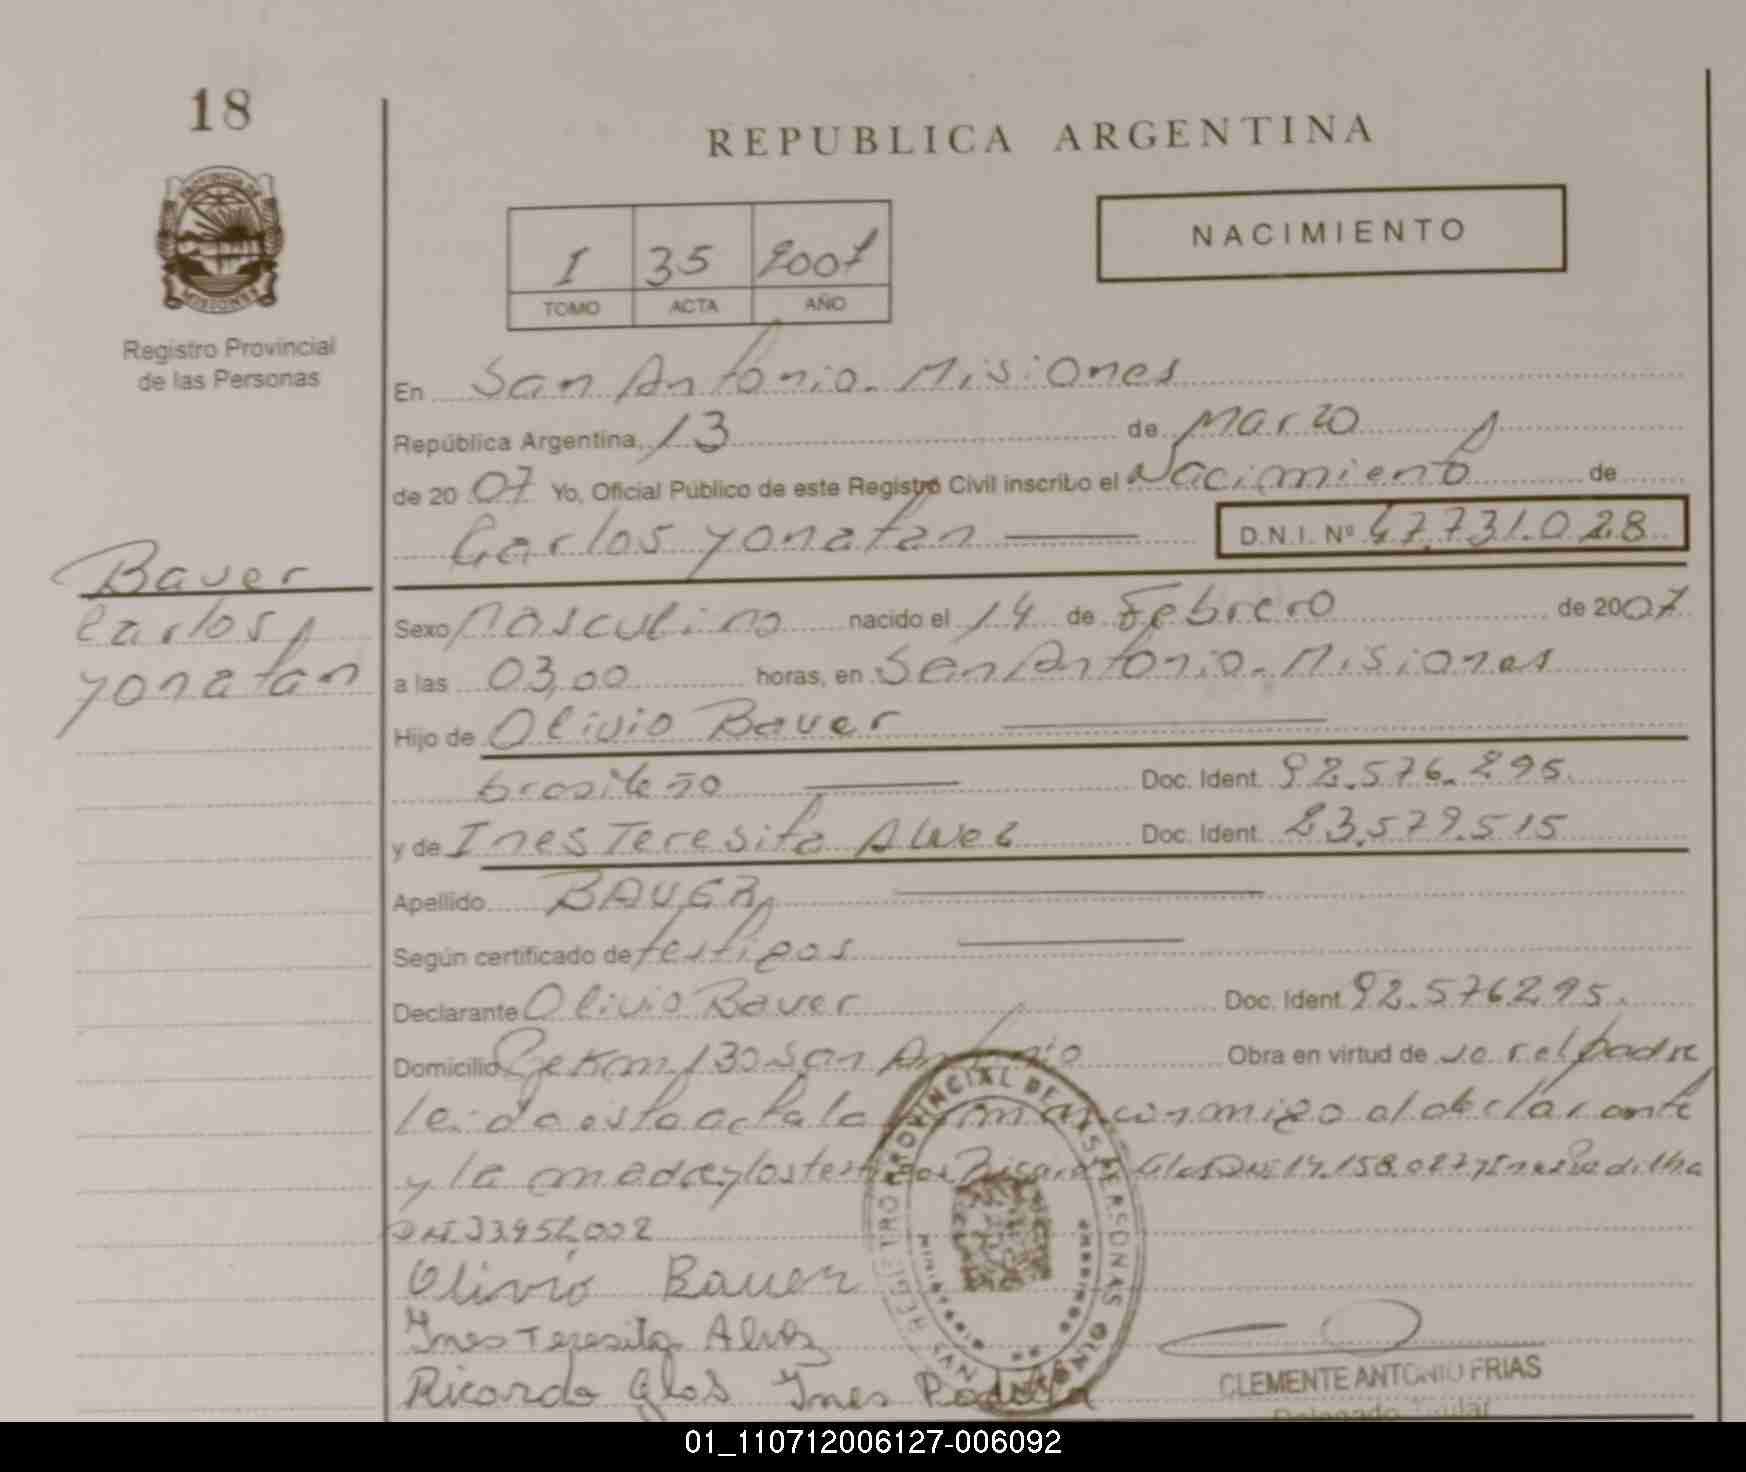 18
REPUBLICA ARGENTINA
PROVINCIA DE
MISIONES
NACIMIENTO
I 35 2007
TOMO ACTA AÑO
Registro Provincial
de las Personas
En San Antonio. Misiones
República Argentina, 13 de Marzo
de 20 07 Yo, Oficial Público de este Registro Civil inscribo el Nacimiento de
Carlos Yonatan D.N.I. Nº 47.731.028
Bauer
Carlos
Yonatan
Sexo Masculino nacido el 14 de Febrero de 2007
a las 03,00 horas, en San Antonio. Misiones
Hijo de Olivio Bauer
brasileño Doc. Ident. 92.576.295
y de Ines Teresita Alves Doc. Ident. 23.579.515
Apellido BAUER
Según certificado de testigos
Declarante Olivio Bauer Doc. Ident. 92.576295.
Domicilio Pje Km 130 San Antonio Obra en virtud de ser el padre
Leida esta acta la firman conmigo el declarante
y la madre y los testigos Ricardo Glos DNI 14.158.027 y Ines Padilha
DNI 33952,002
Olivio Bauer
Ines Teresita Alves
Ricardo Glos Ines Padilha
REGISTRO PROVINCIAL DE LAS PERSONAS
MINISTERIO
CLEMENTE ANTONIO FRIAS
Delegado Titular
01_110712006127-006092